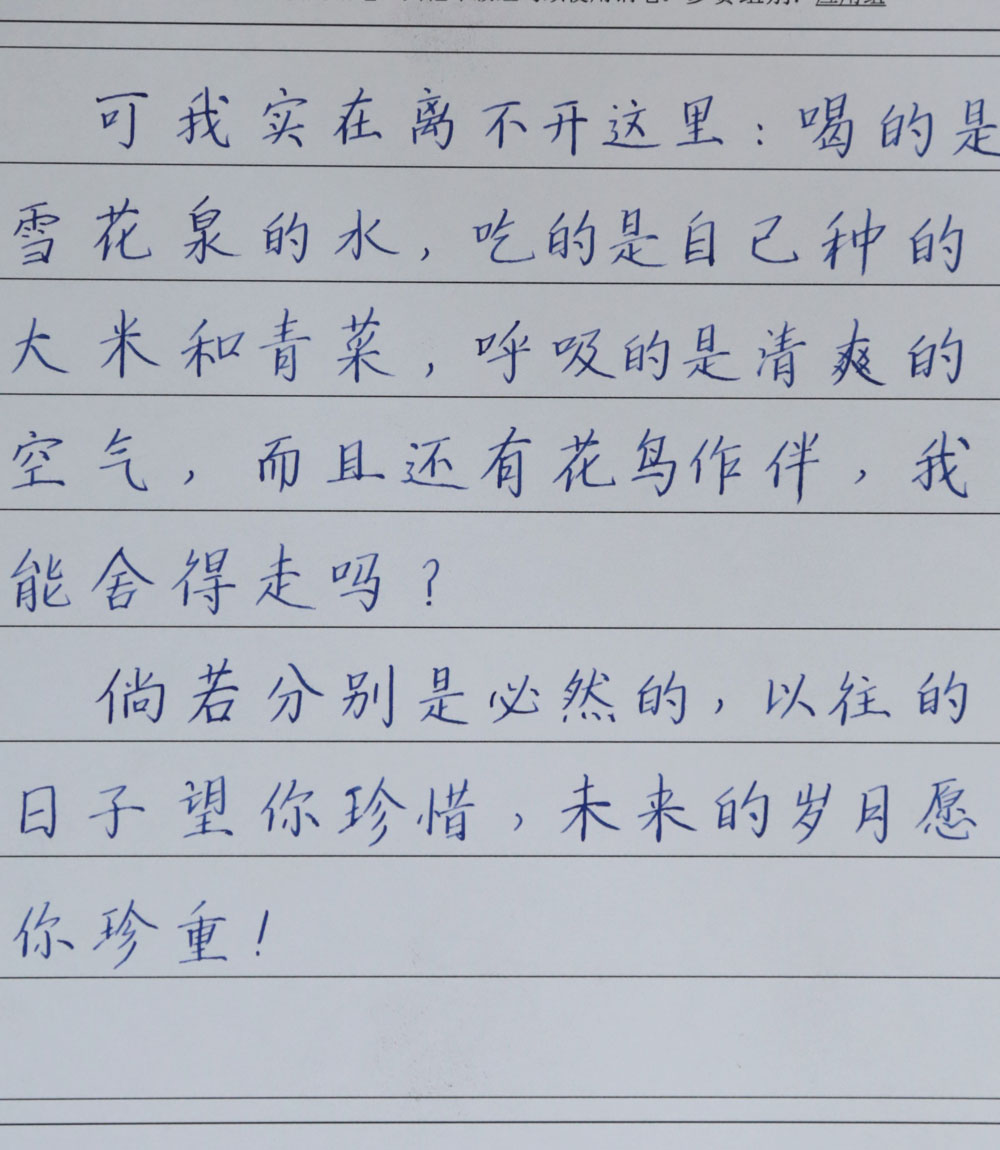 可我实在离不开这里：喝的是
雪花泉的水，吃的是自己种的
大米和青菜，呼吸的是清爽的
空气，而且还有花鸟作伴，我
能舍得走吗？
倘若分别是必然的，以往的
日子望你珍惜，未来的岁月愿
你珍重！